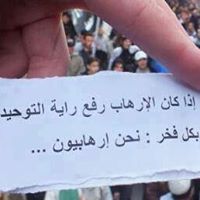 إذا كان الإرهاب رفع راية التوحيد
بكل فخر : نحن إرهابيون ...